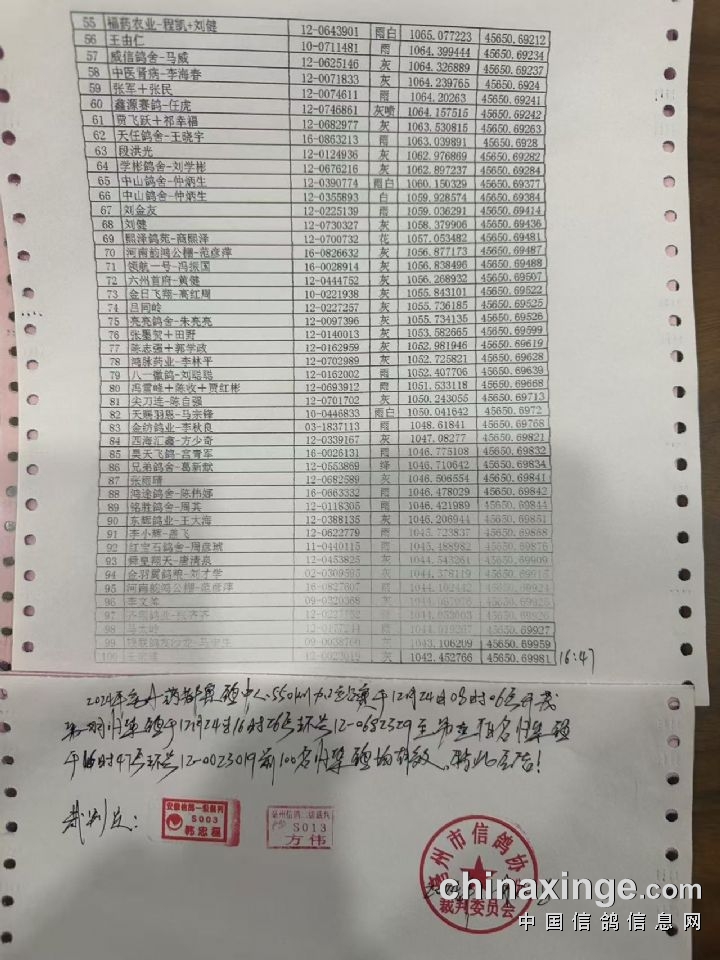 55 福药农业-程凯+刘健 12-0643901 雨白 1065.077223 45650.69212
56 王由仁 10-0711481 雨 1064.399444 45650.69234
57 威信鸽舍-马威 12-0625146 灰 1064.326889 45650.69237
58 中医肾病-李海春 12-0071833 灰 1064.239765 45650.6924
59 张军+张民 12-0074611 雨 1064.20263 45650.69241
60 鑫源赛鸽-任虎 12-0746861 灰喷 1064.157515 45650.69242
61 贾飞跃+祁幸福 12-0682977 灰 1063.530815 45650.69263
62 天任鸽舍-王晓宇 16-0863213 雨 1063.039891 45650.6928
63 段洪光 12-0124936 灰 1062.976869 45650.69282
64 学彬鸽舍-刘学彬 12-0676216 灰 1062.897237 45650.69284
65 中山鸽舍-仲炳生 12-0390774 雨白 1060.150329 45650.69377
66 中山鸽舍-仲炳生 12-0355893 白 1059.928574 45650.69384
67 刘金友 12-0225139 雨 1059.036291 45650.69414
68 刘健 12-0730327 灰 1058.379906 45650.69436
69 熙泽鸽苑-商熙泽 12-0700732 花 1057.053482 45650.69481
70 河南韵鸿公棚-范彦萍 16-0826632 灰 1056.877173 45650.69487
71 领航一号-冯振国 16-0028914 灰 1056.838496 45650.69488
72 六州首府-黄健 12-0444752 灰 1056.268932 45650.69507
73 金日飞翔-高红周 10-0221938 灰 1055.843101 45650.69522
74 吕同岭 12-0227257 灰 1055.736185 45650.69525
75 亮亮鸽舍-朱亮亮 12-0097396 灰 1055.734135 45650.69526
76 张墨贺+田野 12-0140013 灰 1053.582665 45650.69599
77 陈志强+郭学政 12-0162959 灰 1052.981946 45650.69619
78 鸿脉药业-李林平 12-0702989 灰 1052.725821 45650.69628
79 八一徽鸽-刘聪聪 12-0162002 雨 1052.407706 45650.69639
80 冯雷峰+陈收+贾红彬 12-0693912 雨 1051.533118 45650.69668
81 尖刀连-陈自强 12-0701702 灰 1050.243055 45650.69713
82 天赐羽恩-马宗锋 10-0446833 雨白 1050.041642 45650.6972
83 金纺鸽业-李秋良 03-1837113 雨 1048.61841 45650.69768
84 西海汇鑫-方少奇 12-0339167 灰 1047.08277 45650.69821
85 昊天飞鸽-宫青军 16-0026131 雨 1046.775108 45650.69832
86 兄弟鸽舍-葛新献 12-0553869 绛 1046.710642 45650.69834
87 张丽晴 12-0682589 灰 1046.506554 45650.69841
88 鸿途鸽舍-陈伟娜 16-0663332 雨 1046.478029 45650.69842
89 铭胜鸽舍-周其 12-0118305 雨 1046.421989 45650.69844
90 东辉鸽业-王大海 12-0388135 灰 1046.206944 45650.69851
91 李小辉-孟飞 12-0622779 雨 1045.723837 45650.69868
92 红宝石鸽舍-周彦斌 11-0440115 雨 1045.488982 45650.69876
93 舜皇翔天-唐清泉 12-0453825 灰 1044.543261 45650.69909
94 金羽翼鸽苑-刘才学 02-0309595 灰 1044.378119 45650.69915
95 河南韵鸿公棚-范彦萍 16-0827607 雨 1044.102442 45650.69924
96 李文 09-0320368 灰
97 12-
98 12-0157214 雨 45650.69927
99 09-0038760 1043.106209 45650.69959
100 12-0023019 灰 1042.452766 45650.69981
16:47
2024年 550km 加站赛于12月24日08时06分开笼
羽归巢鸽于12月24日16时26分环号12-0682529至 名归巢鸽
于16时47分环号12-0023019前100名归巢鸽均有效,特此公告!
裁判长:
安徽省鸽一级裁判
S003
韩忠磊
亳州信鸽二级裁判
S013
方伟
亳州市信鸽协
裁判委员会
chinaxinge.com
中国信鸽信息网